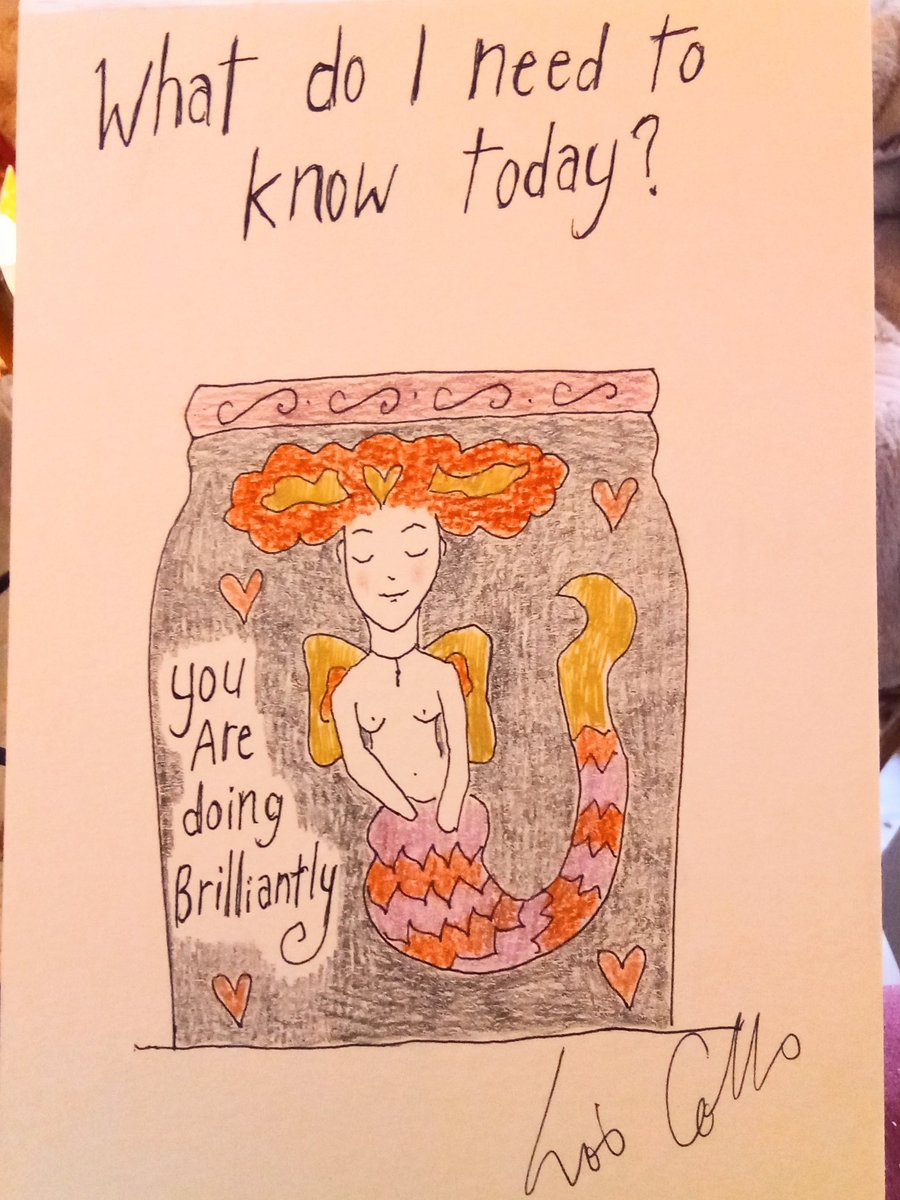 What do I need to
know today?
you
Are
doing
Brilliantly